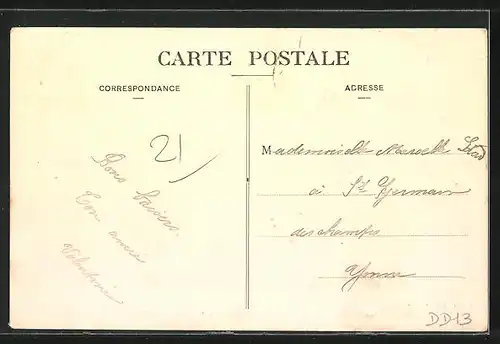 CARTE POSTALE
CORRESPONDANCE
ADRESSE
21
Bons baisers
Ton amie
Valentine
Mademoiselle Marcelle
à St Germain
des champs
Yonne
DD13